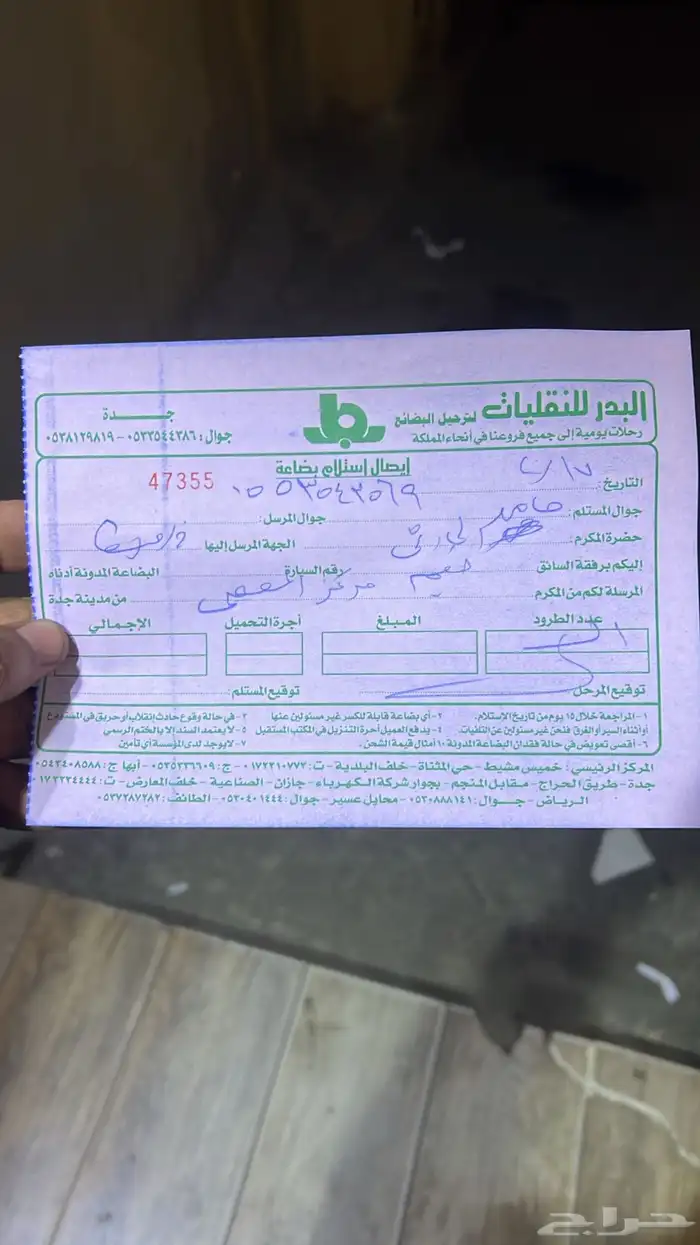 البدر للنقليات لترحيل البضائع
رحلات يومية إلى جميع فروعنا في أنحاء المملكة
جــــدة
جوال: ٠٥٣٣٥٤٤٣٨٦ - ٠٥٣٨١٢٩٨١٩
إيصال إستلام بضاعة
47355
التاريخ:
جوال المستلم: حامد جوال المرسل: ٠٥٥٣٥٤٣٥٦٩
حضرة المكرم: الحارثي الجهة المرسل إليها
إليكم برفقة السائق رقم السيارة البضاعة المدونة أدناه
المرسلة لكم من المكرم مركز من مدينة جدة
عدد الطرود المبلغ أجرة التحميل الإجمالي
توقيع المرحل توقيع المستلم:
١- المراجعة خلال ١٥ يوم من تاريخ الإستلام. ٢- أي بضاعة قابلة للكسر غير مسئولين عنها ٣- في حالة وقوع حادث إنقلاب أو حريق في المستودع
أو أثناء السير أو الغرق فنحن غير مسئولين عن التلفيات. ٤- يدفع العميل أجرة التنزيل في المكتب المستقبل ٥- لا يعتمد السند إلا بالختم الرسمي
٦- أقصى تعويض في حالة فقدان البضاعة المدونة ١٠ أمثال قيمة الشحن. ٧- لا يوجد لدى المؤسسة أي تأمين
المركز الرئيسي: خميس مشيط - حي المثناة - خلف البلدية - ت: ٠١٧٢٢١٠٧٧٢ - ج: ٠٥٢٥٣٣٦٦٠٩ - أبها ج: ٠٥٤٣٤٠٨٥٨٨
جدة - طريق الحراج - مقابل المنجم - بجوار شركة الكهرباء - جازان - الصناعية - خلف المعارض - ت: ٠١٧٣٢٣٤٤٤٤
الرياض - جـوال: ٠٥٣٠٨٨٨١٤١ - محايل عسير - جوال: ٠٥٣٠٤٠١٤٤٤ - الطائف: ٠٥٣٧٢٨٧٢٨٢
حراج